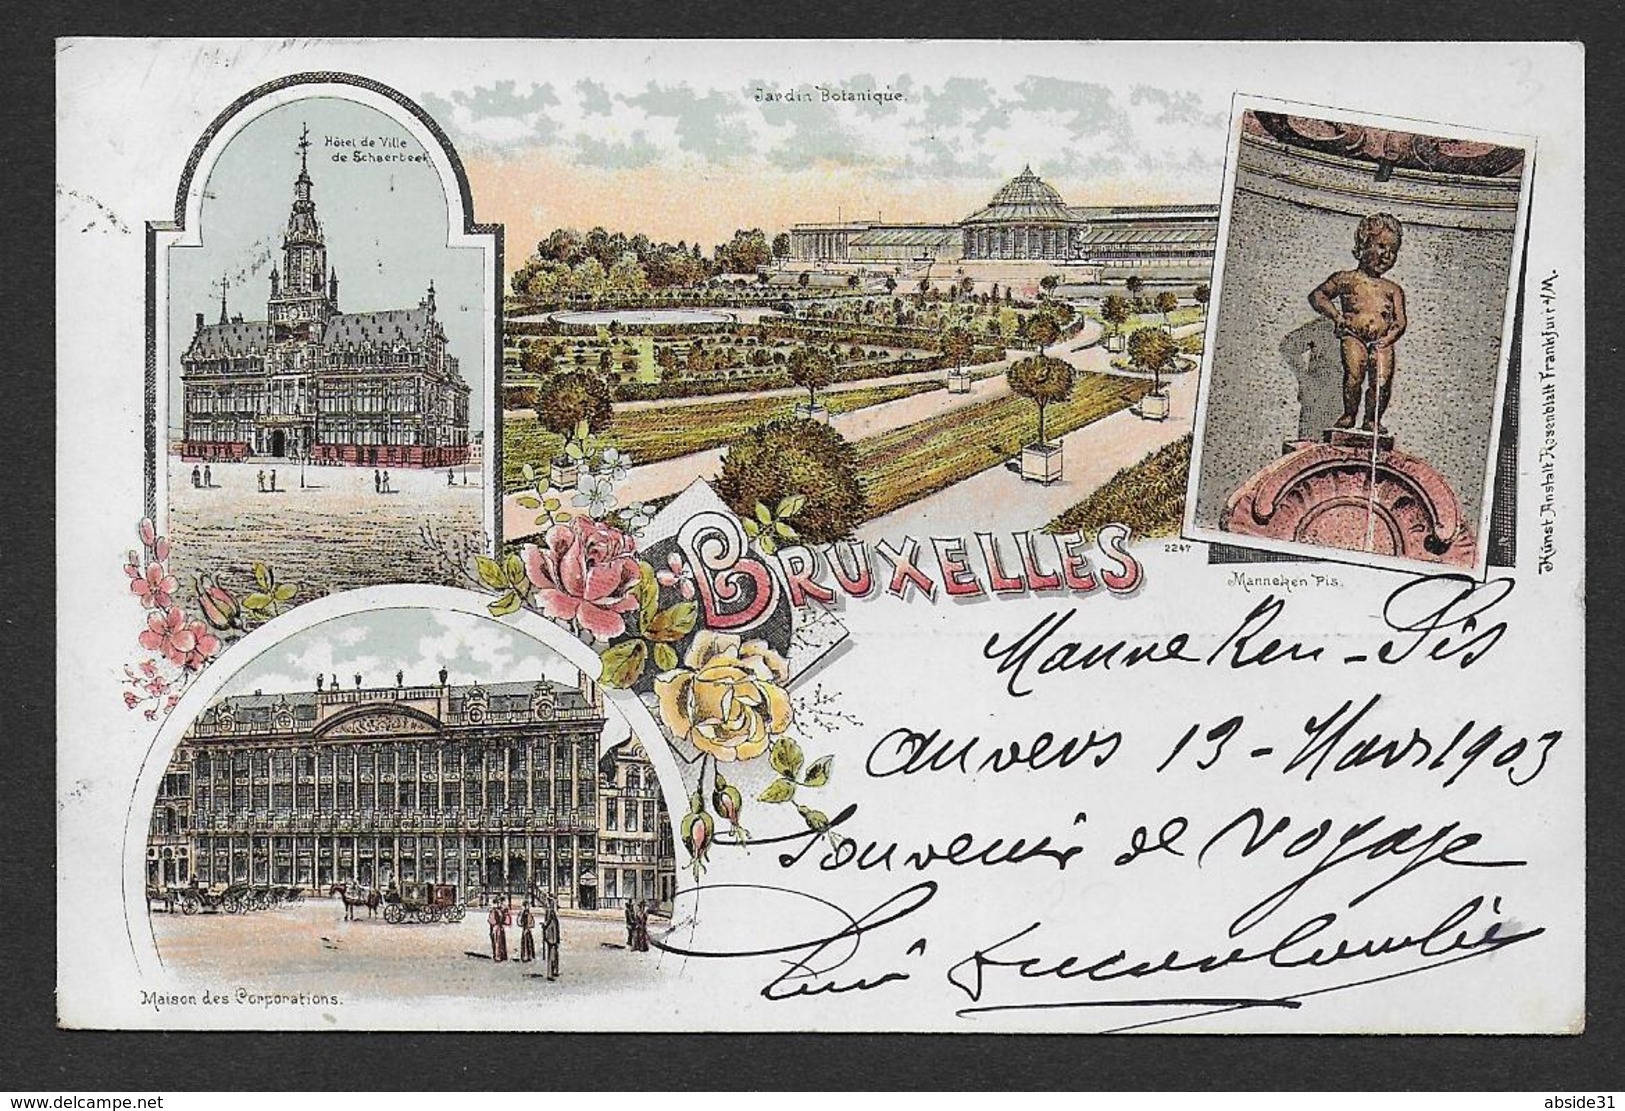 Hôtel de Ville
de Schaerbeek
Jardin Botanique.
BRUXELLES
2247
Manneken Pis.
Künst Anstalt Rosenblatt Frankfurt a/M.
Maison des Corporations.
Manneken-Pis
Anvers 13-Mars 1903
Souvenir de voyage
delcampe.net
abside31